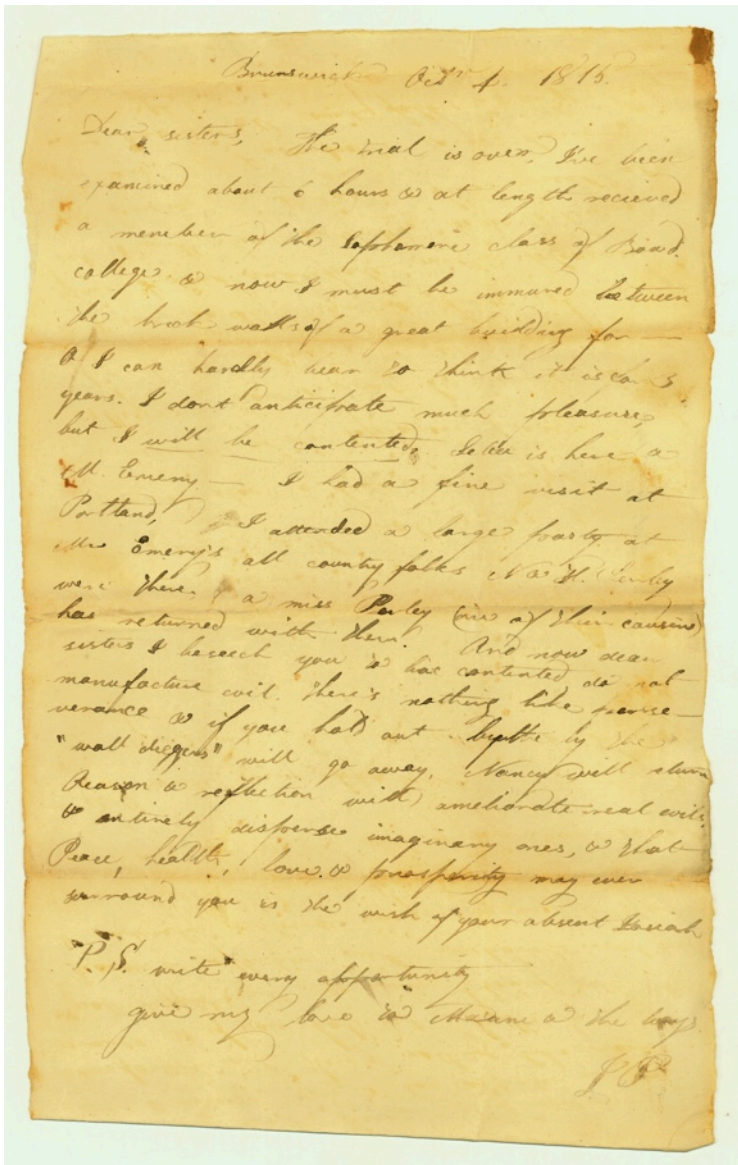 Brunswick Octr 4. 1815.
Dear sisters, The trial is over, I've been
examined about 6 hours & at length recieved
a member of the Sophomore class of Bowd.
college & now I must be immured between
the brick walls of a great building for —
O I can hardly bear to think it is for 3
years. I dont anticipate much pleasure,
but I will be contented. is here a
M. Emery — I had a fine visit at
Portland, I attended a large party at
Mr Emery's all county folks N & H.
were there, & a miss Poley (niece of their cousins)
has returned with them. And now dear
sisters I beseech you to be contented do not
manufacture evil. There's nothing like perse-
verance & if you hold out by the
"wall diggers" will go away, Nancy will return
Reason & reflection will ameliorate real evils
& entirely disperse imaginary ones, & that
Peace, health, love & prosperity may ever
surround you is the wish of your absent Josiah
P. S. write every opportunity
give my love to & the boys.
J P